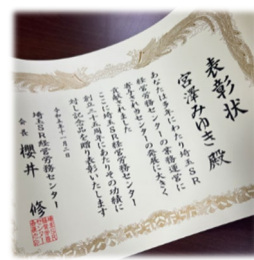 表彰状
宮澤みゆき殿
あなたは多年にわたり埼玉SR
経営労務センターの業務運営に
寄与され当センターの発展に大きく
貢献されました
ここに埼玉SR経営労務センター
創立三十周年にあたりその功績に
対し記念品を贈り表彰いたします
令和五年十一月二日
埼玉SR経営労務センター
会長 櫻井 修